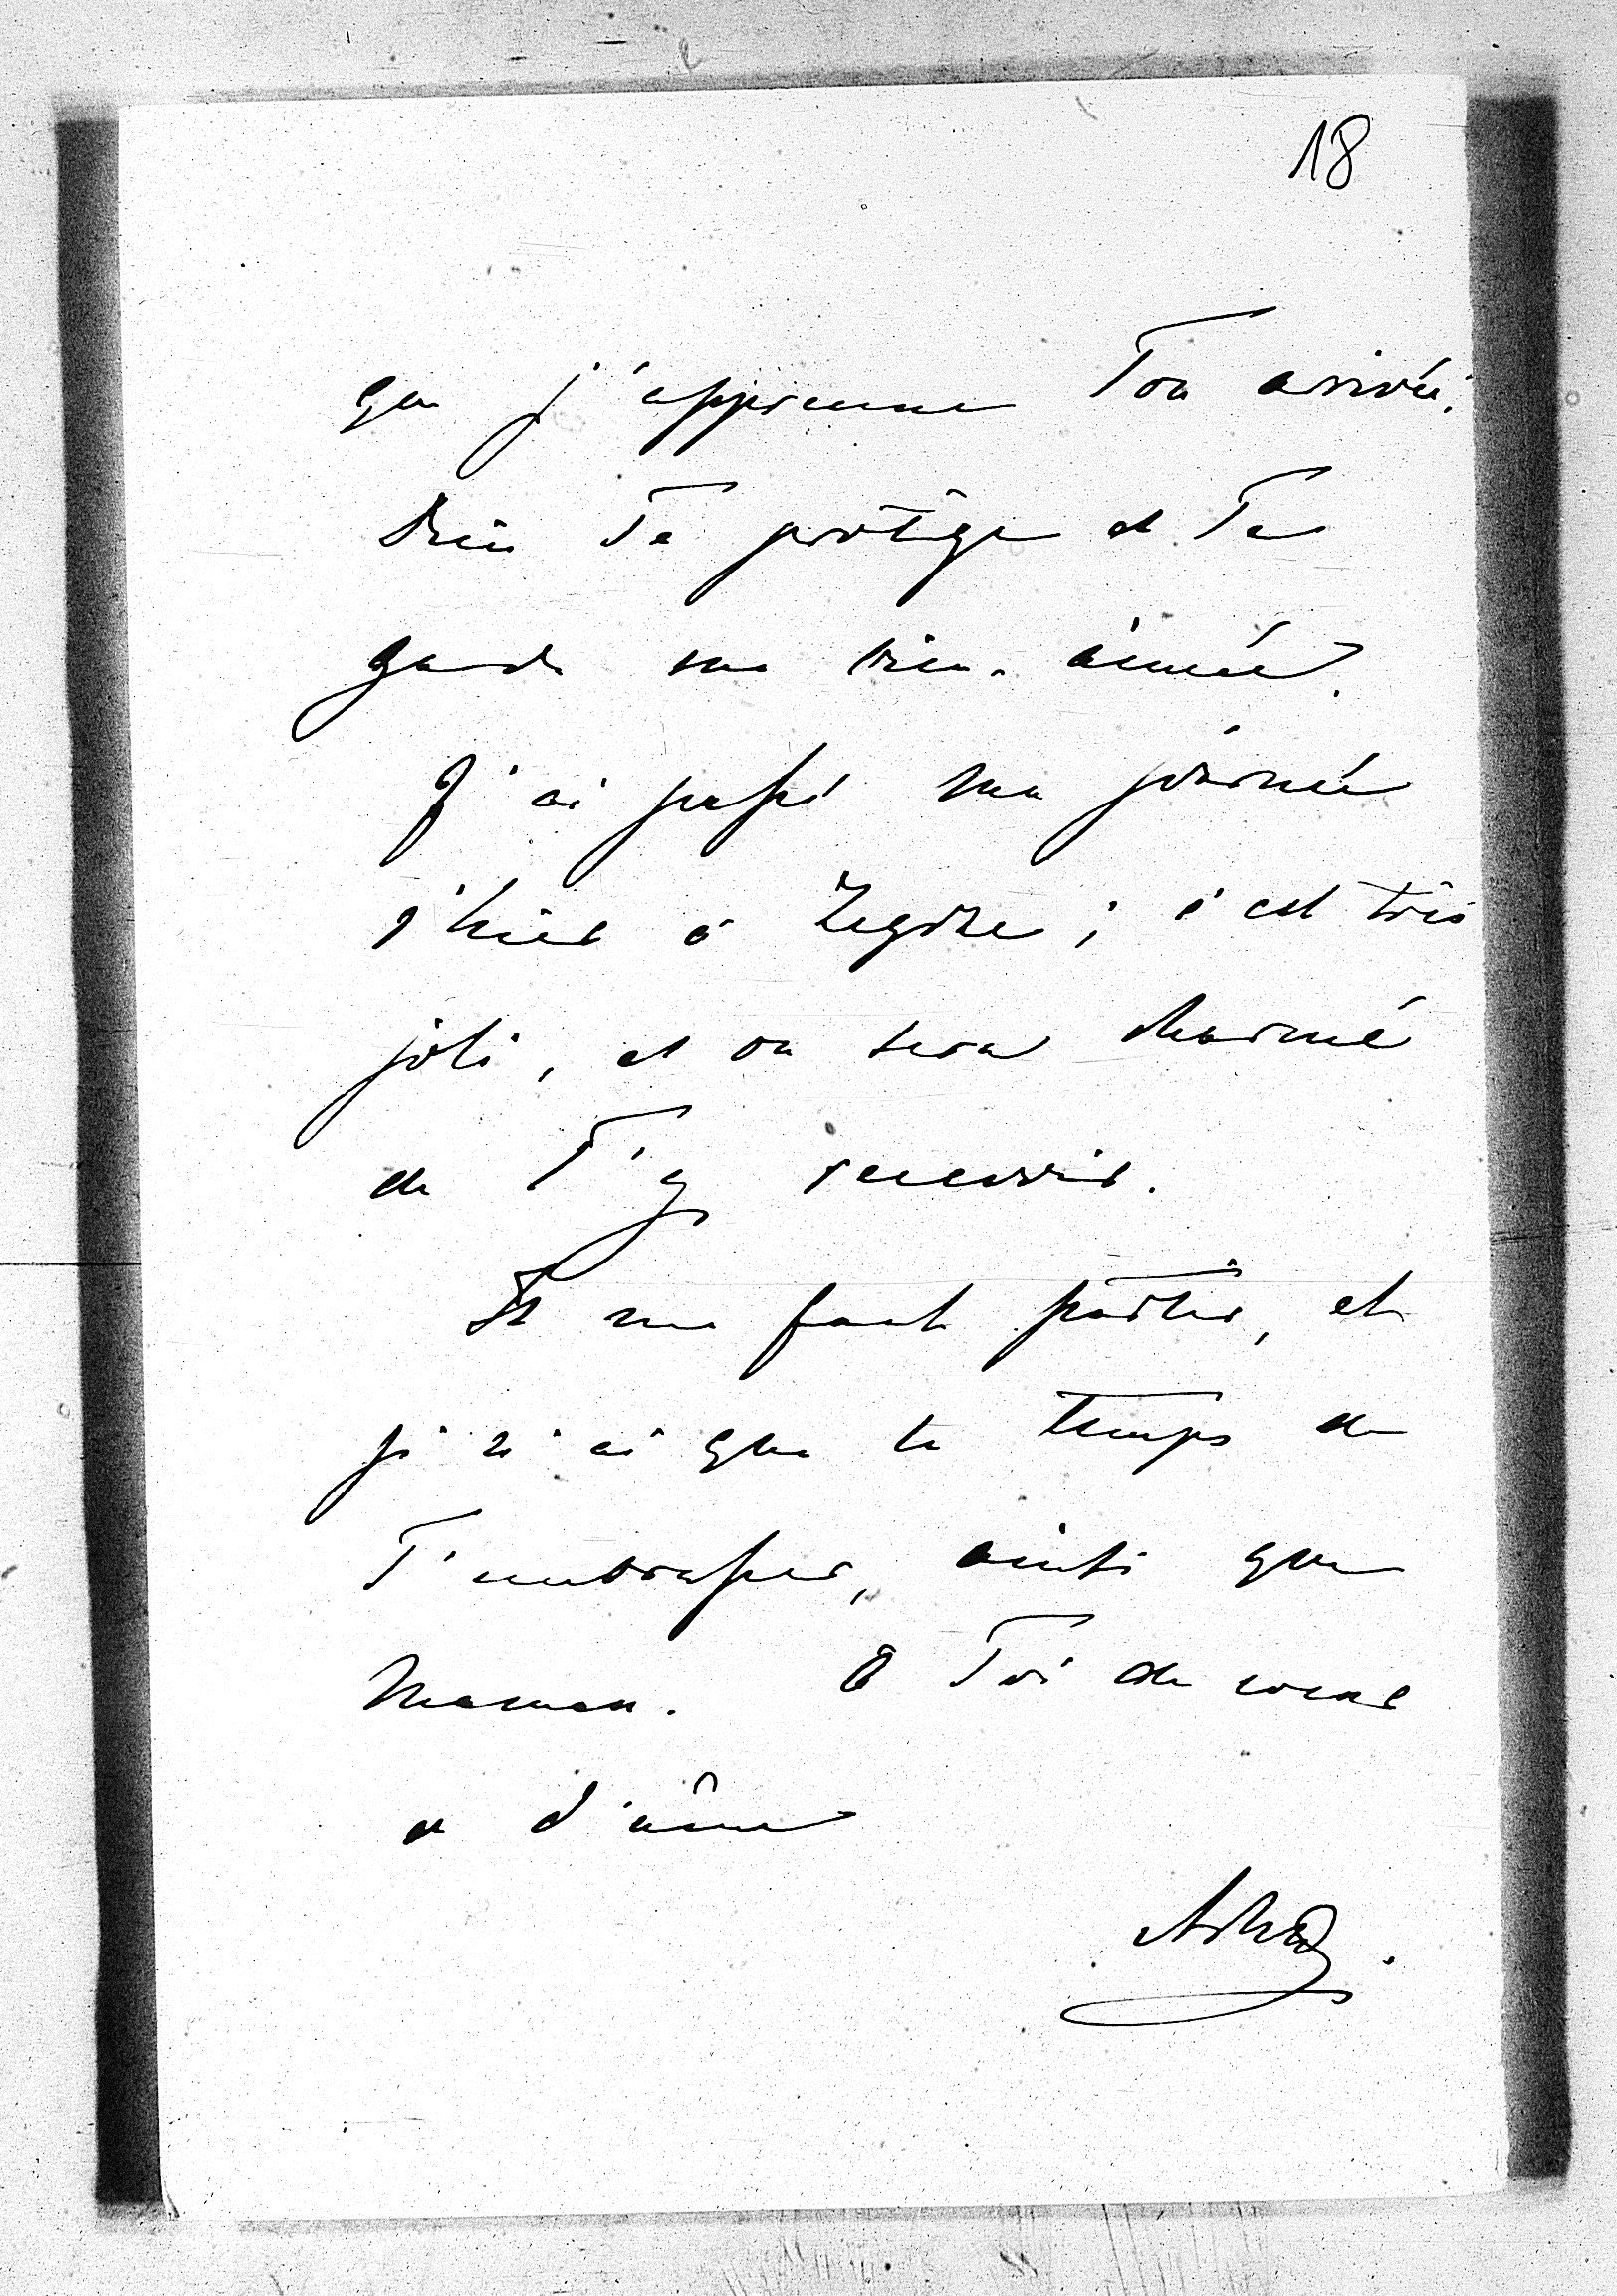 18
que j'apprenne Ton arrivée.
Dieu Te protège et Te
garde ma bien-aimée.
J'ai passé ma journée
d'hier à Zegrze ; c'est très
joli, et on sera charmé
de T'y recevoir.
Il me faut partir, et
je n'ai que le temps de
T'embrasser, ainsi que
Maman. À Toi de cœur
et d'âme